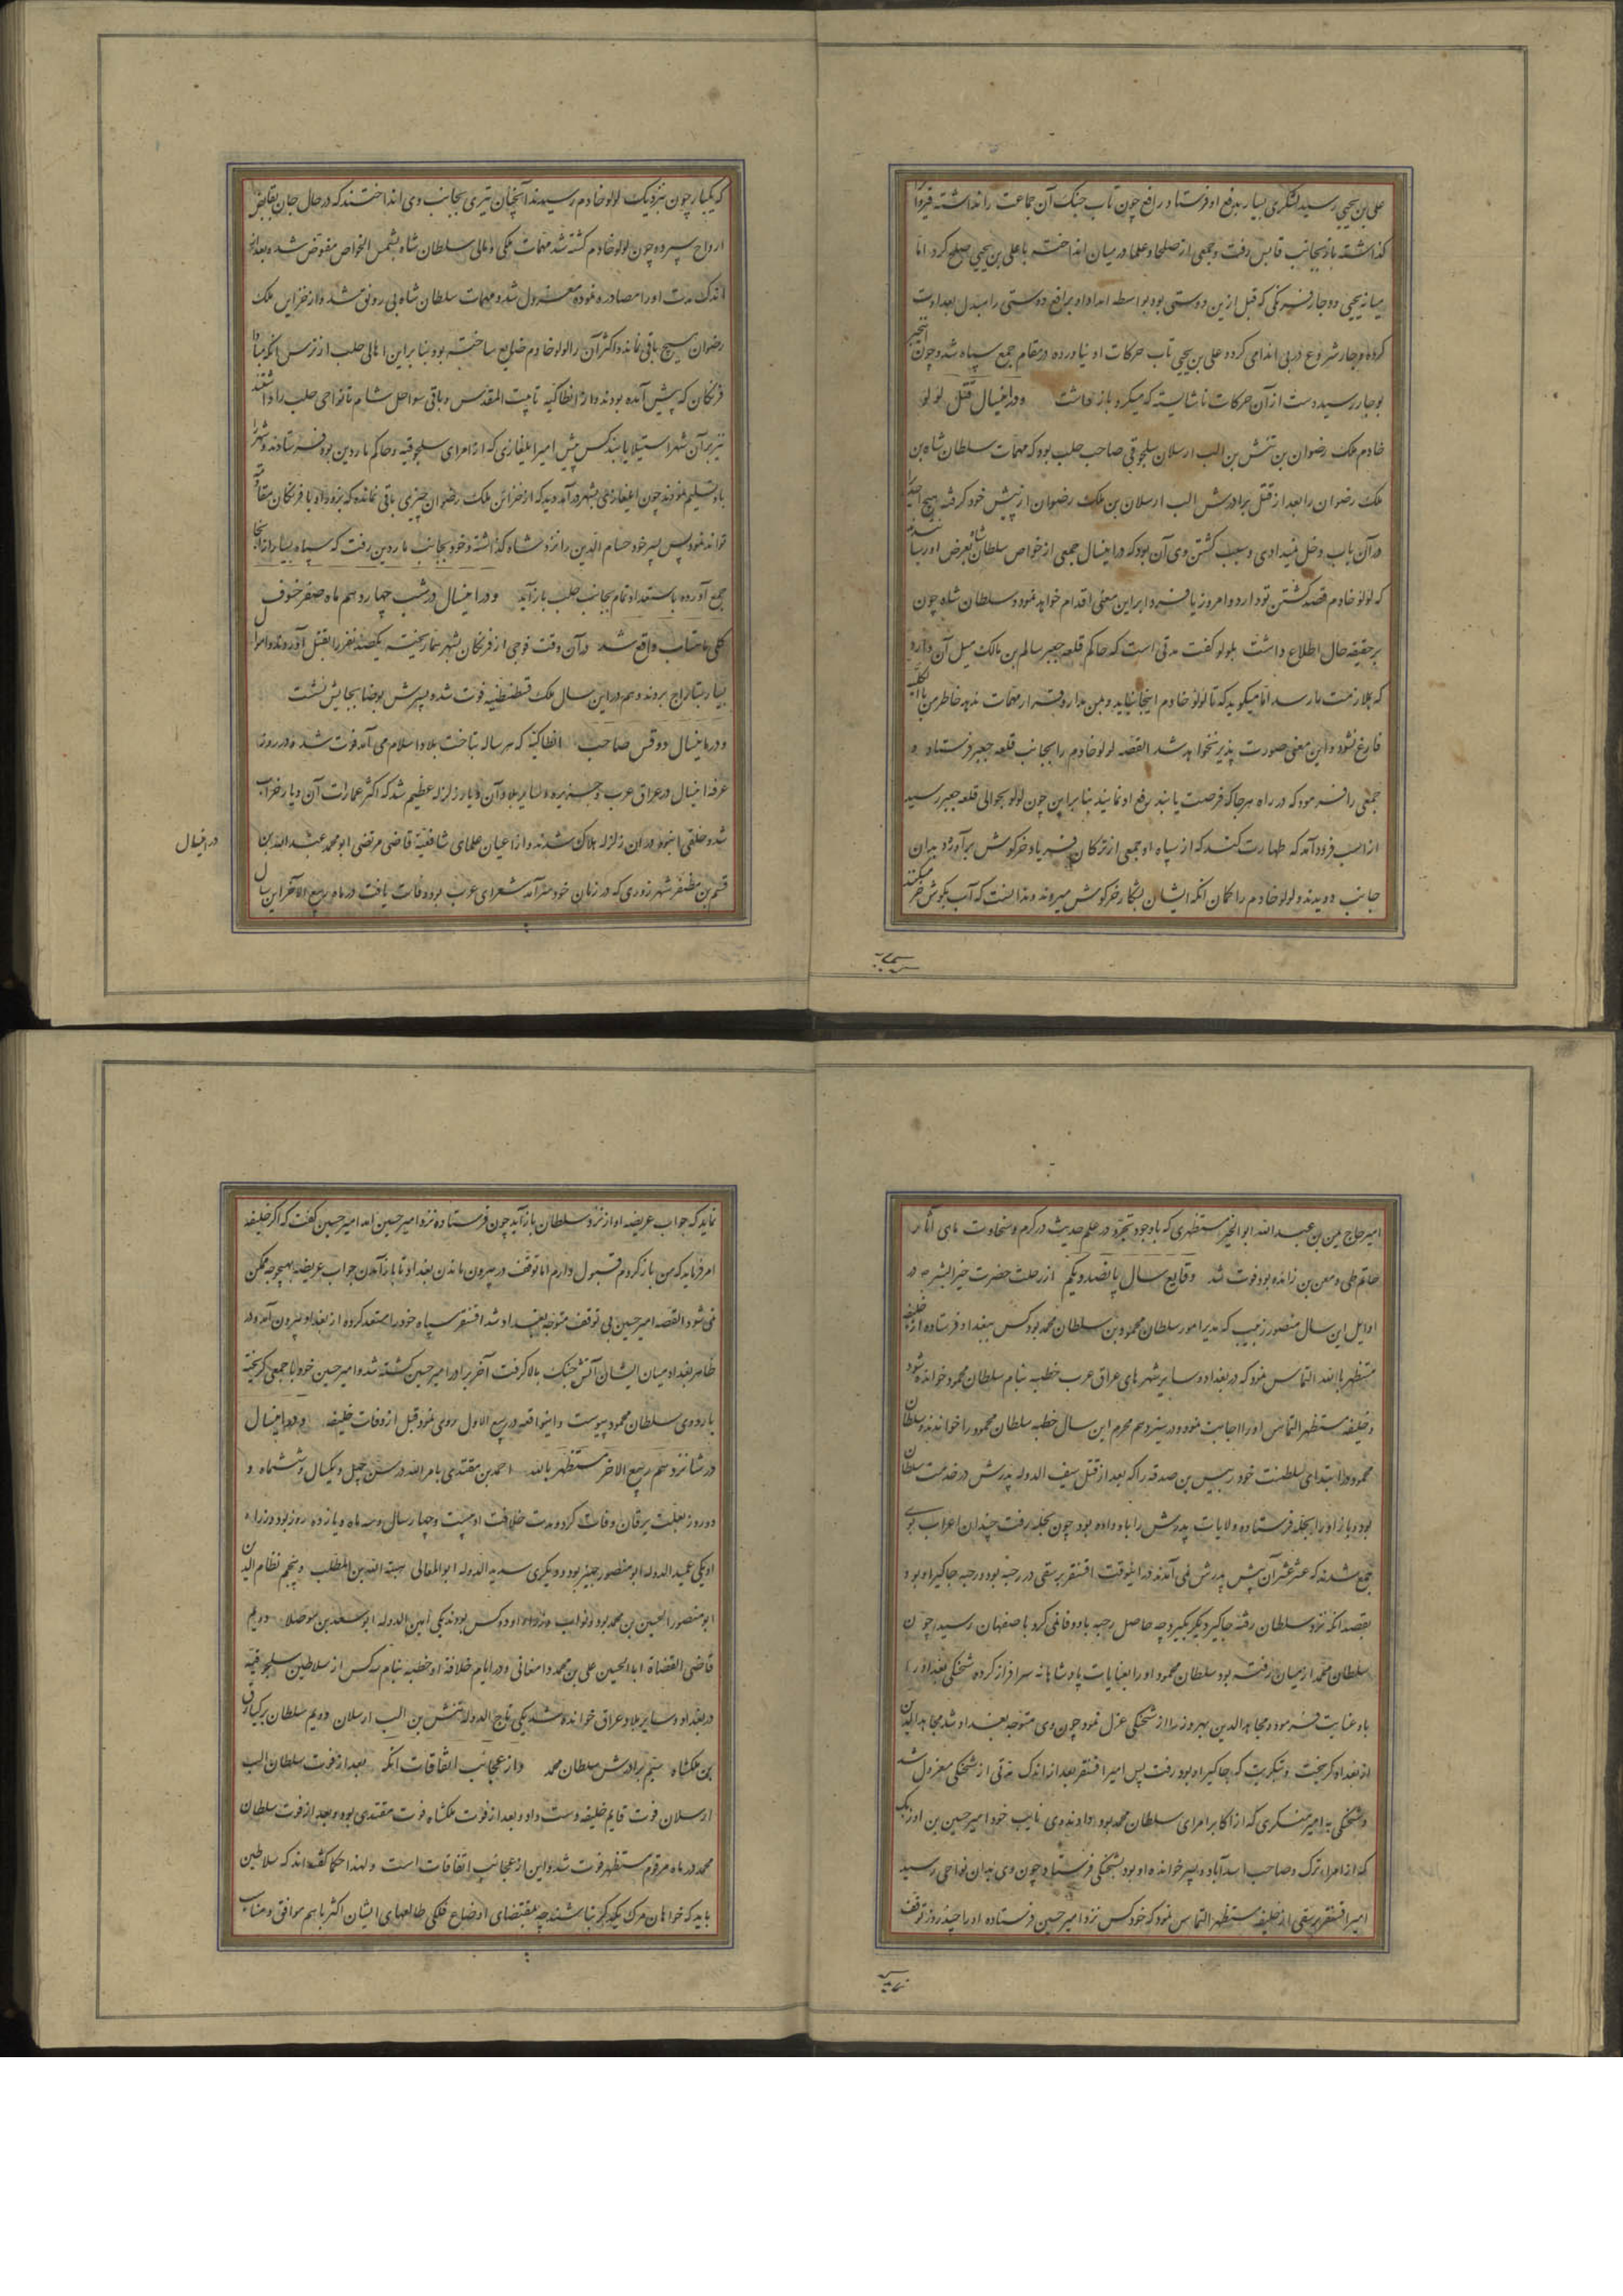 علی بن یحیی رسید لشکری بسیار بدفع او فرستاد رافع چون تاب جنک آن جماعت را نداشته قیروان
کذاشته باز بجانب قابس رفت و جمعی از صلحا و علما در میان انداخته با علی بن یحیی صلح کرد اما
میانه یحیی و وجار فرنکی که قبل ازین دوستی بود بواسطه امداد او برافع دوستی را مبدل بعداوت
کرده و جار شروع در بی اندامی کرد و علی بن یحیی تاب حرکات او نیاورده در مقام جمع سپاه شد و چون این خبر
بوجار رسید دست از آن حرکات ناشایسته که میکرد باز داشت و در اینسال قتل لولو
خادم ملک رضوان بن تتش بن الب ارسلان سلجوقی صاحب حلب بود که مهمات سلطان شاه بن
ملک رضوان را بعد از قتل برادرش الب ارسلان بن ملک رضوان از پیش خود کرفته هیچ احدیرا
در آن باب دخل نمیدادی و سبب کشتن وی آن بود که در اینسال جمعی از خواص سلطان شاه بعرض او رسانیدند
که لولو خادم قصد کشتن تو دارد و امروز یا فردا براین معنی اقدام خواهد نمود و سلطان شاه چون
بر حقیقه حال اطلاع داشت بلولو کفت مدتی است که حاکم قلعه جعبر سالم بن مالک میل آن دارد
که بملازمت ما رسد اما میکوید که تا لولو خادم اینجا نیاید و بمن مدار و قرار مهمات ندهد خاطر من بالکلیه
فارغ نشود و این معنی صورت پذیر نخواهد شد القصه لولو خادم را بجانب قلعه جعبر فرستاد و
جمعی را فرمود که در راه هرجا که فرصت یابند رفع او نمایند بنابراین چون لولو بحوالی قلعه جعبر رسید
از اسب فرود آمد که طهارت کند که از سپاه او جمعی از ترکان فریاد خرکوش برآورده بدان
جانب دویدند و لولو خادم را کمان انکه ایشان بشکار خرکوش میروند و ندانست که آب بکوش خر میکنند
که یکبار چون بنزدیک لولو خادم رسیدند آنچنان تیری بجانب وی انداختند که در حال جان بقابض
ارواح سپرد و چون لولو خادم کشته شد مهمات ملکی و مالی سلطان شاه بشمس الخواص مفوض شد و بعد از
اندک مدت او را مصادره نموده معزول شد و مهمات سلطان شاه بی رونق شد و از خزاین ملک
رضوان هیچ باقی نماند و اکثر آن را لولو خادم ضایع ساخته بود بنا براین اهالی حلب از ترس انکه مبادا
فرنکان که پیش آمده بودند و از انطاکیه تا بیت المقدس و باقی سواحل شام تا نواحی حلب را داشتند
نیز بر آن شهر استیلا یابند کس پیش امیر ایلغازی که از امرای سلجوقیه و حاکم ماردین بود فرستادند و شهر را
باو تسلیم نمودند چون ایلغازی بشهر درآمد دید که از خزاین ملک رضوان چیزی باقی نمانده که بزور او با فرنکان مقاومت
تواند نمود پس پسر خود حسام الدین را نزد شاه کذاشته و خود بجانب ماردین رفت که سپاه بسیار از آنجا
جمع آورده با استعداد تمام بجانب حلب باز آید و در اینسال در شب چهاردهم ماه صفر خسوف
کلی ماهتاب واقع شد در آن وقت فوجی از فرنکان بشهر حما ریخته یکصد نفر را بقتل آوردند و اموال
بسیار بتاراج بردند و هم در این سال ملک قسطنطنیه فوت شد و پسرش یوحنا بجایش نشست
و در اینسال دوقس صاحب انطاکیه که هر ساله بتاخت بلاد اسلام می آمد فوت شد و در روز
عرفه اینسال در عراق عرب و جزیره و سایر بلاد آن دیار زلزله عظیم شد که اکثر عمارات آن دیار خراب
شد و خلقی انبوه در ان زلزله هلاک شدند و از اعیان علمای شافعیه قاضی مرتضی ابو محمد عبد الله بن
قسم بن مظفر شهرزوری که در زمان خود سرآمد شعرای عرب بود وفات یافت در ماه ربیع الآخر این سال
در اینسال
امیر حاج یمن بن عبد الله ابوالخیر مستظهری که با وجود تبحر در علم حدیث در کرم و سخاوت ماحی آثار
حاتم طی و معن بن زائده بود فوت شد وقایع سال پانصد و یکم از رحلت حضرت خیر البشریه در
اوایل این سال منصور زبیب که مدبر امور سلطان محمود بن سلطان محمد بود کس ببغداد فرستاده از خلیفه
مستظهر بالله التماس نمود که در بغداد و سایر شهرهای عراق عرب خطبه بنام سلطان محمود خوانده شود
و خلیفه مستظهر التماس او را اجابت نمود و در سیزدهم محرم این سال خطبه سلطان محمود را خواندند و سلطان
محمود در ابتدای سلطنت خود دبیس بن صدقه را که بعد از قتل سیف الدوله پدرش در خدمت سلطان
بود باز او را بحله فرستاده ولایات پدرش را باو داده بود چون بحله رفت چندان اعراب بوی
جمع شدند که عشر عشر آن پیش پدرش نمی آمدند در اینوقت اقسنقر برسقی در رحبه بود و رحبه جاکیر او بود
بقصد انکه نزد سلطان رفته جاکیر دیکر بکیرد چه حاصل رحبه باو وفا نمی کرد باصفهان رسید چون
سلطان محمد از میان رفته بود سلطان محمود او را بعنایات پادشاهانه سرافراز کرده شحنکی بغداد را
باو عنایت فرمود و مجاهد الدین بهروز را از شحنکی عزل نمود چون وی متوجه بغداد شد مجاهد الدین
از بغداد کریخت و بتکریت که جاکیر او بود رفت پس امیر اقسنقر بعد از اندک مدتی از شحنکی معزول شد
و شحنکی به امیر منکبری که از اکابر امرای سلطان محمد بود دادند وی نایب خود امیر حسین بن اوزبک
که از امراء ترک و صاحب اسدآباد و پسر خوانده او بود بشحنکی فرستاد چون وی بدان نواحی رسید
امیر اقسنقر برسقی از خلیفه مستظهر التماس نمود که خود کس نزد امیر حسین فرستاده او را چند روز توقف
نماید که جواب عریضه او از نزد سلطان باز آید چون فرستاده نزد امیر حسین آمد امیر حسین کفت که اکر خلیفه
امر فرماید که من باز کردم قبول دارم اما توقف در بیرون ماندن بغداد تا باز آمدن جواب عریضه بهیچوجه ممکن
نمی شود القصه امیر حسین بی توقف متوجه بغداد شد اقسنقر سپاه خود را مستعد کرده از بغداد بیرون آمد و در
ظاهر بغداد میان ایشان آتش جنک بالا کرفت آخر برادر امیر حسین کشته شد و امیر حسین خود با جمعی کریخته
باردوی سلطان محمود پیوست و اینواقعه در ربیع الاول روی نمود قبل از وفات خلیفه و در اینسال
در شانزدهم ربیع الاخر مستظهر بالله احمد بن مقتدی بامر الله در سن چهل و یکسال و ششماه و
دو روز بعلت یرقان وفات کرد و مدت خلافت او بیست و چهار سال و سه ماه و یازده روز بود وزراء
او یکی عمید الدوله ابو منصور جهیر بود و دیکری سدید الدوله ابو المعالی هبته الله بن المطلب و پنجم نظام الدین
ابو منصور الحسین بن محمد بود و نواب وزراء او دو کس بودند یکی امین الدوله ابو سعد بن موصلا دویم
قاضی القضاة ابا الحسین علی بن محمد دامغانی و در ایام خلافة او خطبه بنام سه کس از سلاطین سلجوقیه
در بغداد و سایر بلاد عراق خوانده شد یکی تاج الدوله تتش بن الب ارسلان دویم سلطان برکیارق
بن ملکشاه سیم برادرش سلطان محمد و از عجایب اتفاقات انکه بعد از فوت سلطان الب
ارسلان فوت قایم خلیفه دست داد و بعد از فوت ملکشاه فوت مقتدی بود و بعد از فوت سلطان
محمد در ماه مرقوم مستظهر فوت شد و این از عجایب اتفاقات است و لهذا حکما کفته اند که سلاطین
باید که خواهان مرک یکدیکر نباشند چه بمقتضای اوضاع فلکی طالعهای ایشان اکثر باهم موافق و مناسب